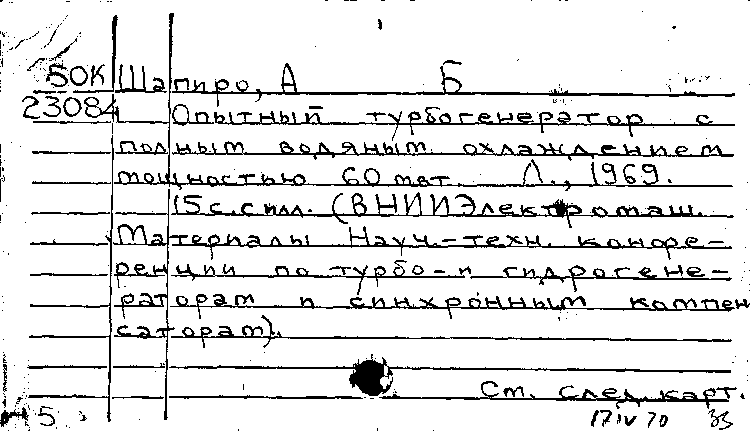 50К Шапиро, А Б
23084 Опытный турбогенератор с
полным водяным охлаждением
мощностью 60 мвт. Л., 1969.
15 с. с илл. (ВНИИЭлектромаш.
Материалы Науч.-техн. конфе-
ренции по турбо- и гидрогене-
раторам и синхронным компен
саторам).
См. след. карт.
5 17 IV 70 33